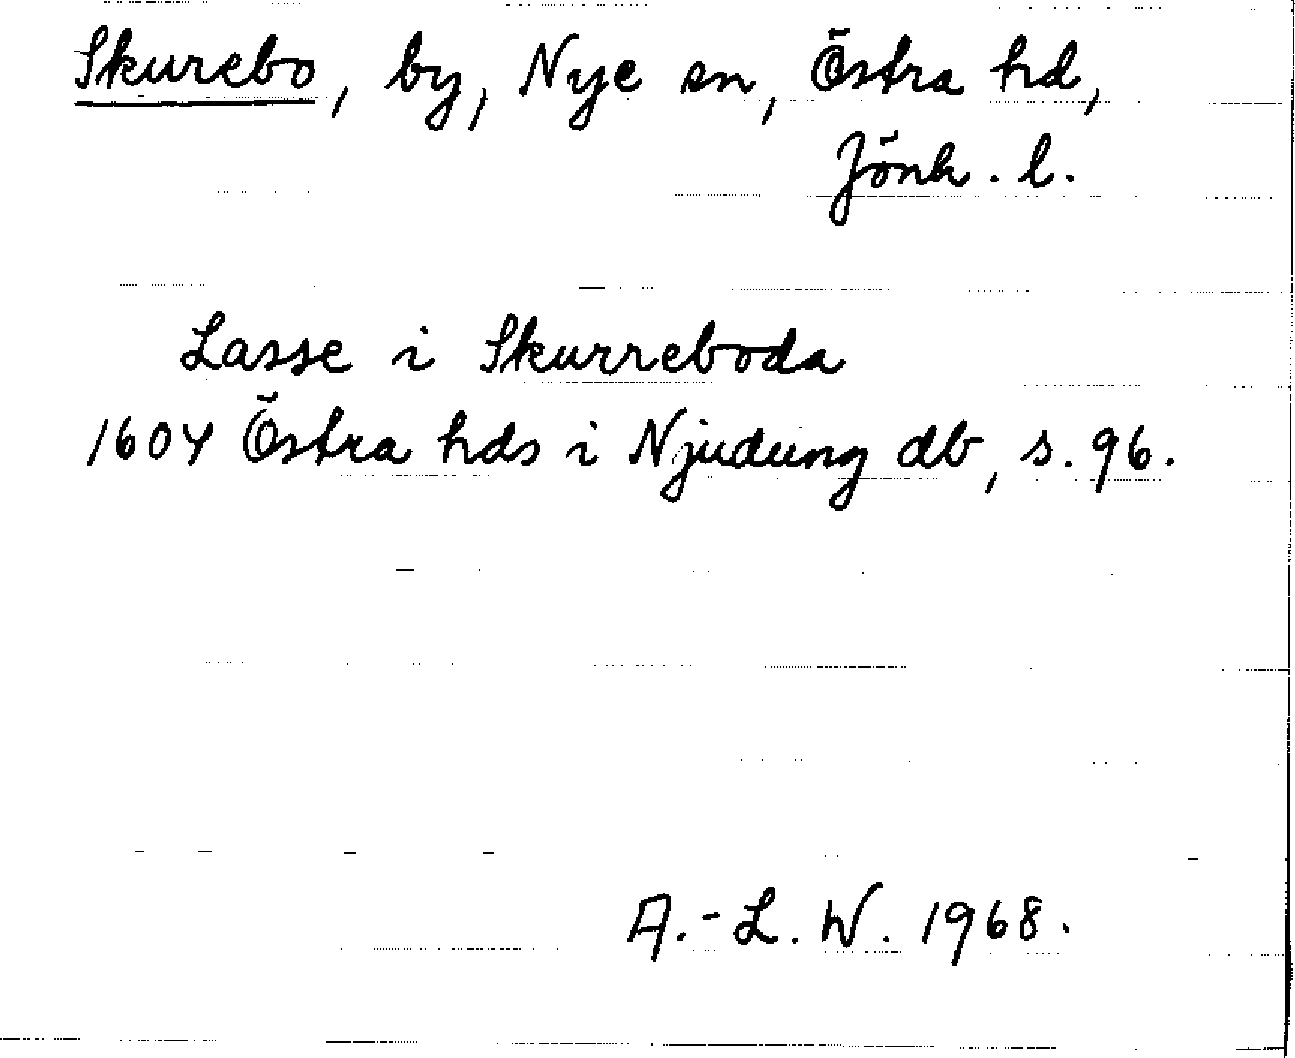 Skurebo, by, Nye sn, Östra hd,
Jönk. l.
Lasse i Skurreboda
1604 Östra hds i Njudung db, s. 96.
A.-L. W. 1968.